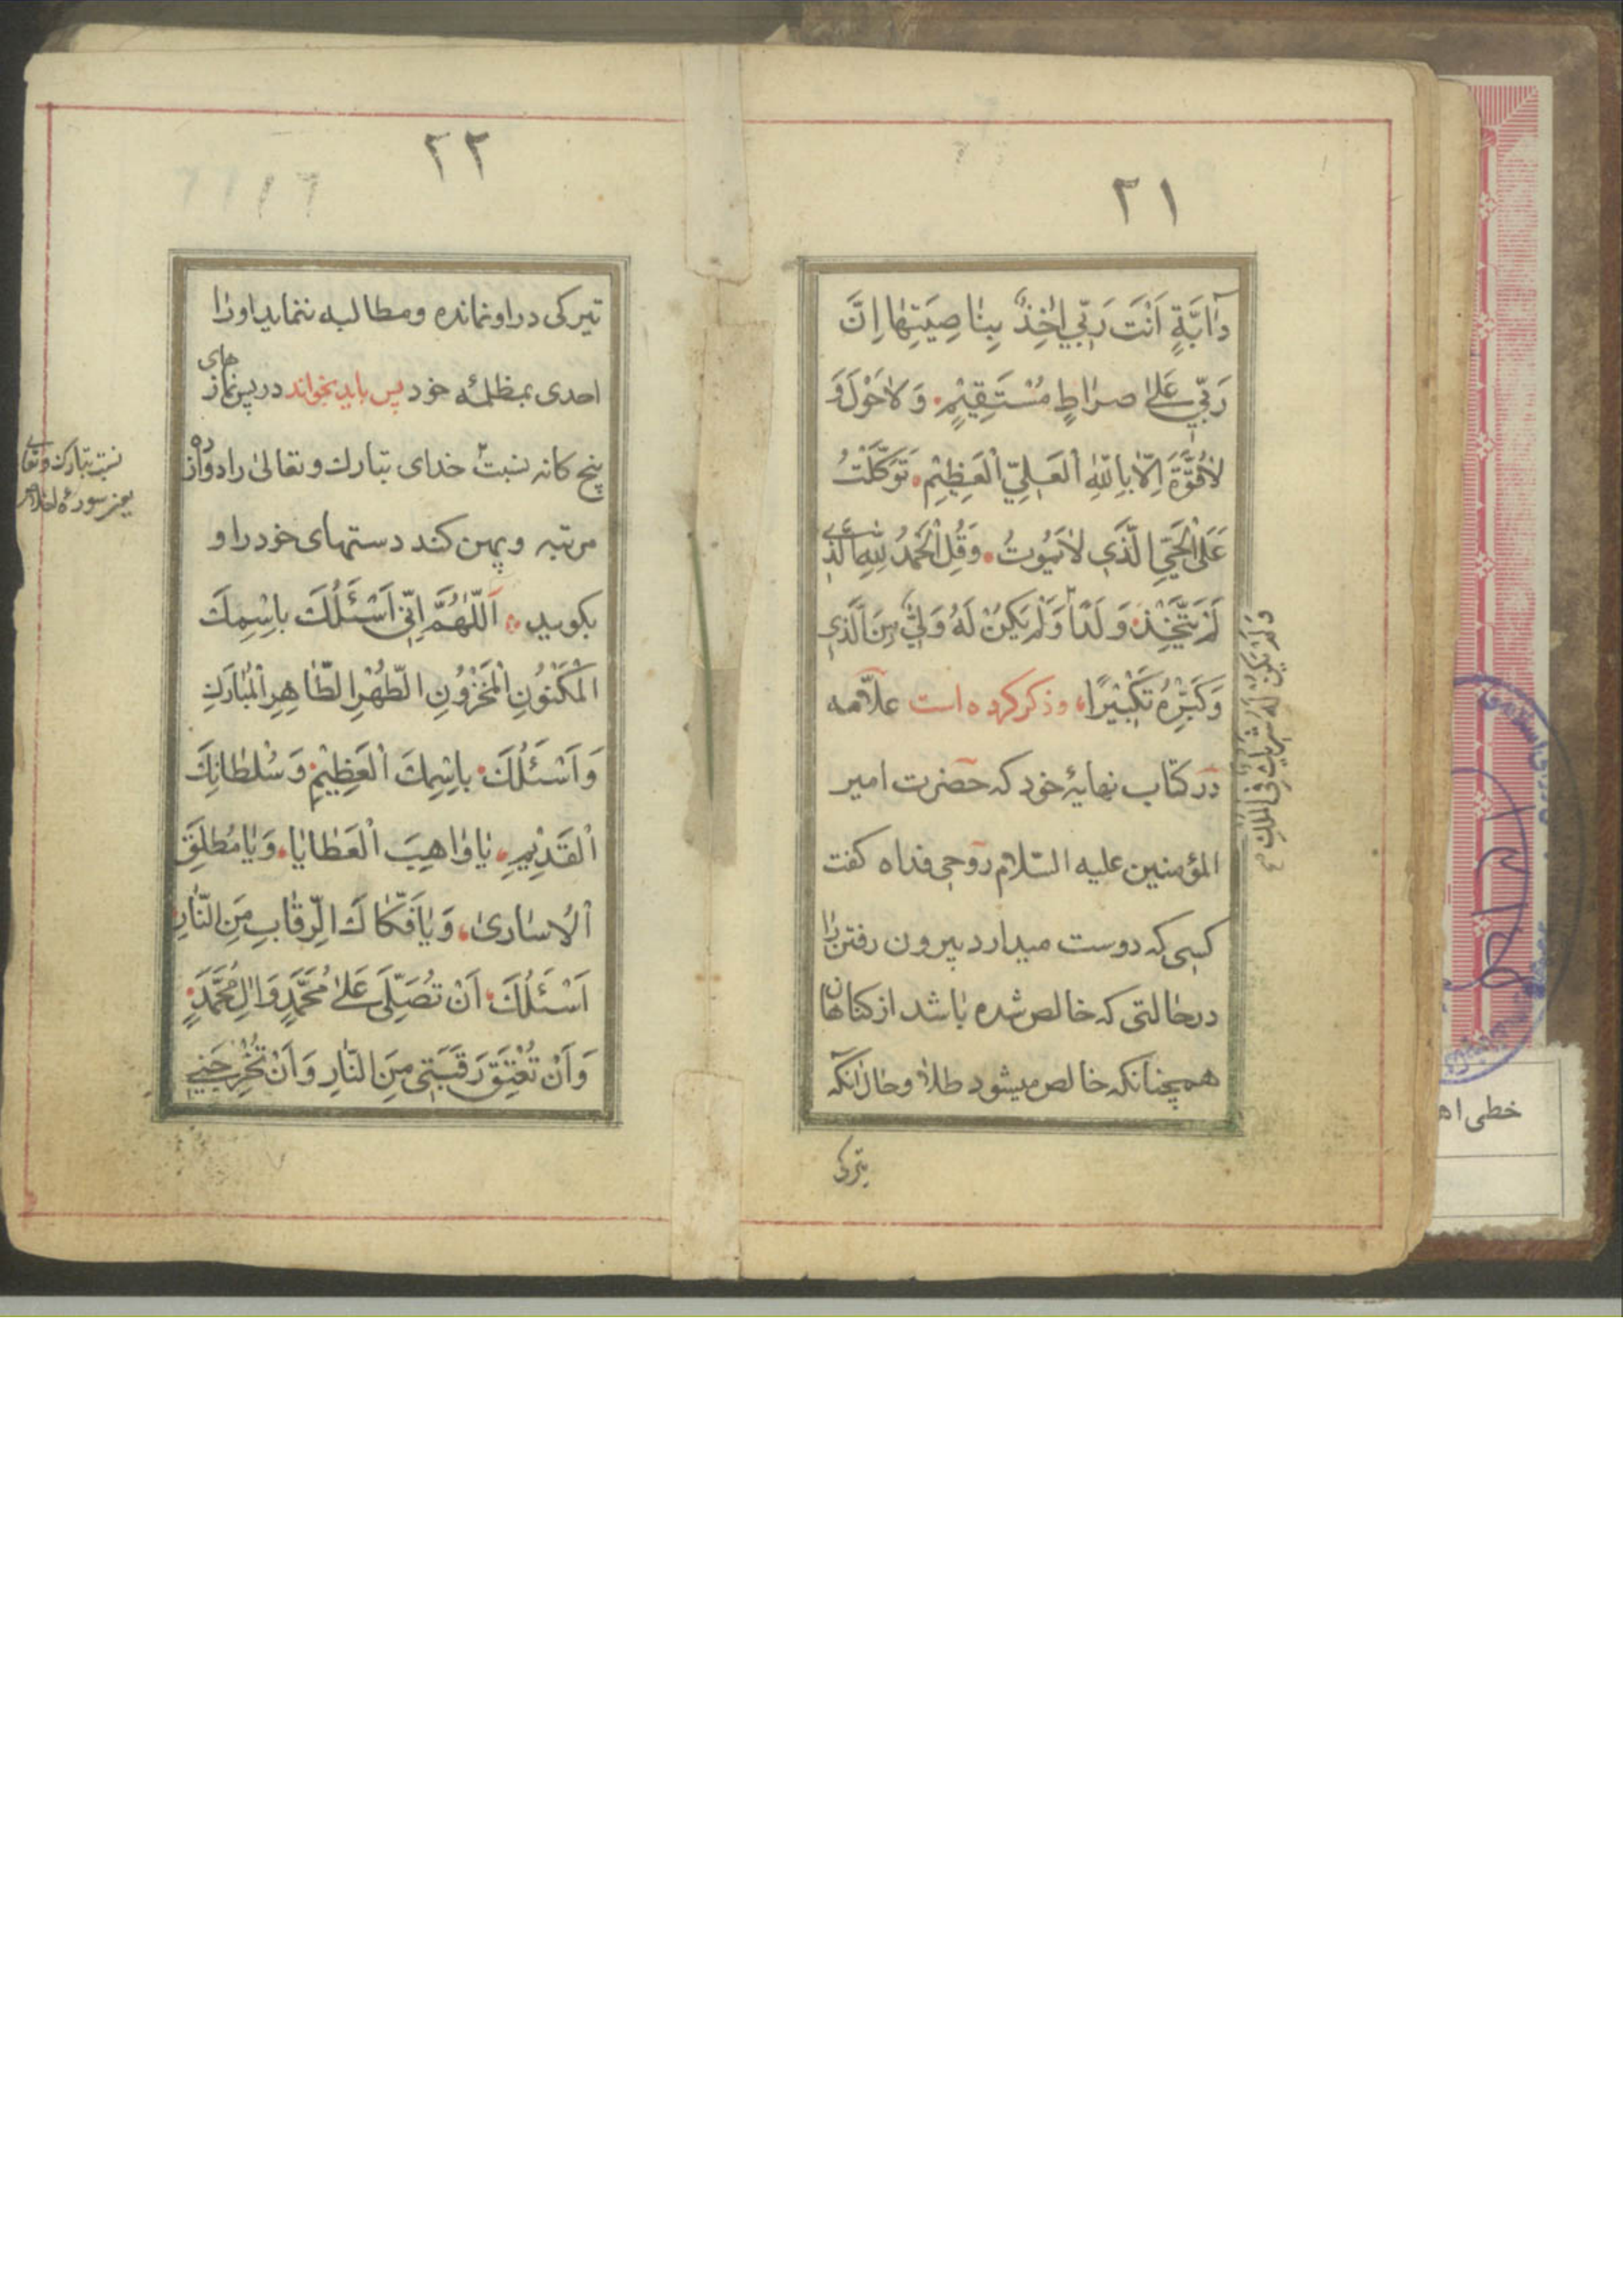 ۲۱
دٰابَّةٍ اَنْتَ رَبّي اٰخِذٌ بِنٰاصِيَتِهٰا اِنَّ
رَبّي عَلىٰ صِرٰاطٍ مُسْتَقيْمٍ وَلٰاحَوْلَ وَ
لٰاقُوَّةَ اِلّٰا بِاللّٰهِ الْعَلِيِّ الْعَظيْمِ تَوَكَّلْتُ
عَلَى الْحَيِّ الَّذي لٰايَمُوتُ وَقُلِ الْحَمْدُ لِلّٰهِ الَّذي
لَمْ يَتَّخِذْ وَلَدًا وَلَمْ يَكُنْ لَهُ وَلِيٌّ مِنَ الَّذي
وَكَبِّرْهُ تَكْبيْرًا وذکر کرده است علّامه
در کتاب نهایهٔ خود که حضرت امیر
المؤمنین علیه السّلام روحی فداه کفت
کسی که دوست میدارد بیرون رفتن را
درحالتی که خالص شده باشد از کناهان
همچنانکه خالص میشود طلا وحال آنکه
تیرکی
وَلَمْ يَكُنْ لَهُ شَريكٌ فِي الْمُلْكِ
۲۲
تیرکی در او نمانده ومطالبه ننماید اورا
احدی بمظلمهٔ خود پس باید بخواند در پس نمازهای
پنج کانه نسبت خدای تبارك وتعالی را دوازده
مرتبه وپهن کند دستهای خود را و
بکوید اَللّٰهُمَّ اِنّي اَسْئَلُكَ بِاسْمِكَ
الْمَكْنُونِ الْمَخْزُونِ الطُّهْرِ الطّٰاهِرِ الْمُبٰارَكِ
وَاَسْئَلُكَ بِاسْمِكَ الْعَظيْمِ وَسُلْطٰانِكَ
الْقَديْمِ يٰا وٰاهِبَ الْعَطٰايٰا وَيٰا مُطْلِقَ
الْاُسٰارىٰ وَيٰا فَكّٰاكَ الرِّقٰابِ مِنَ النّٰارِ
اَسْئَلُكَ اَنْ تُصَلِّيَ عَلىٰ مُحَمَّدٍ وَاٰلِ مُحَمَّدٍ
وَاَنْ تُعْتِقَ رَقَبَتي مِنَ النّٰارِ وَاَنْ تُخْرِجَني
نسبت تبارك وتعالی
یعنی سورهٔ اخلاص
خطی